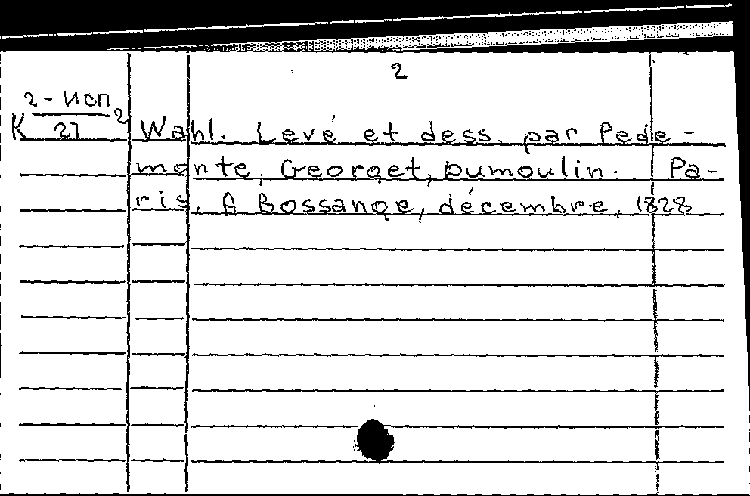 2
2-Исп
К 27 2 Wahl. Levé et dess. par Pede-
monte, Georget, Dumoulin. Pa-
ris, A Bossange, décembre, 1828